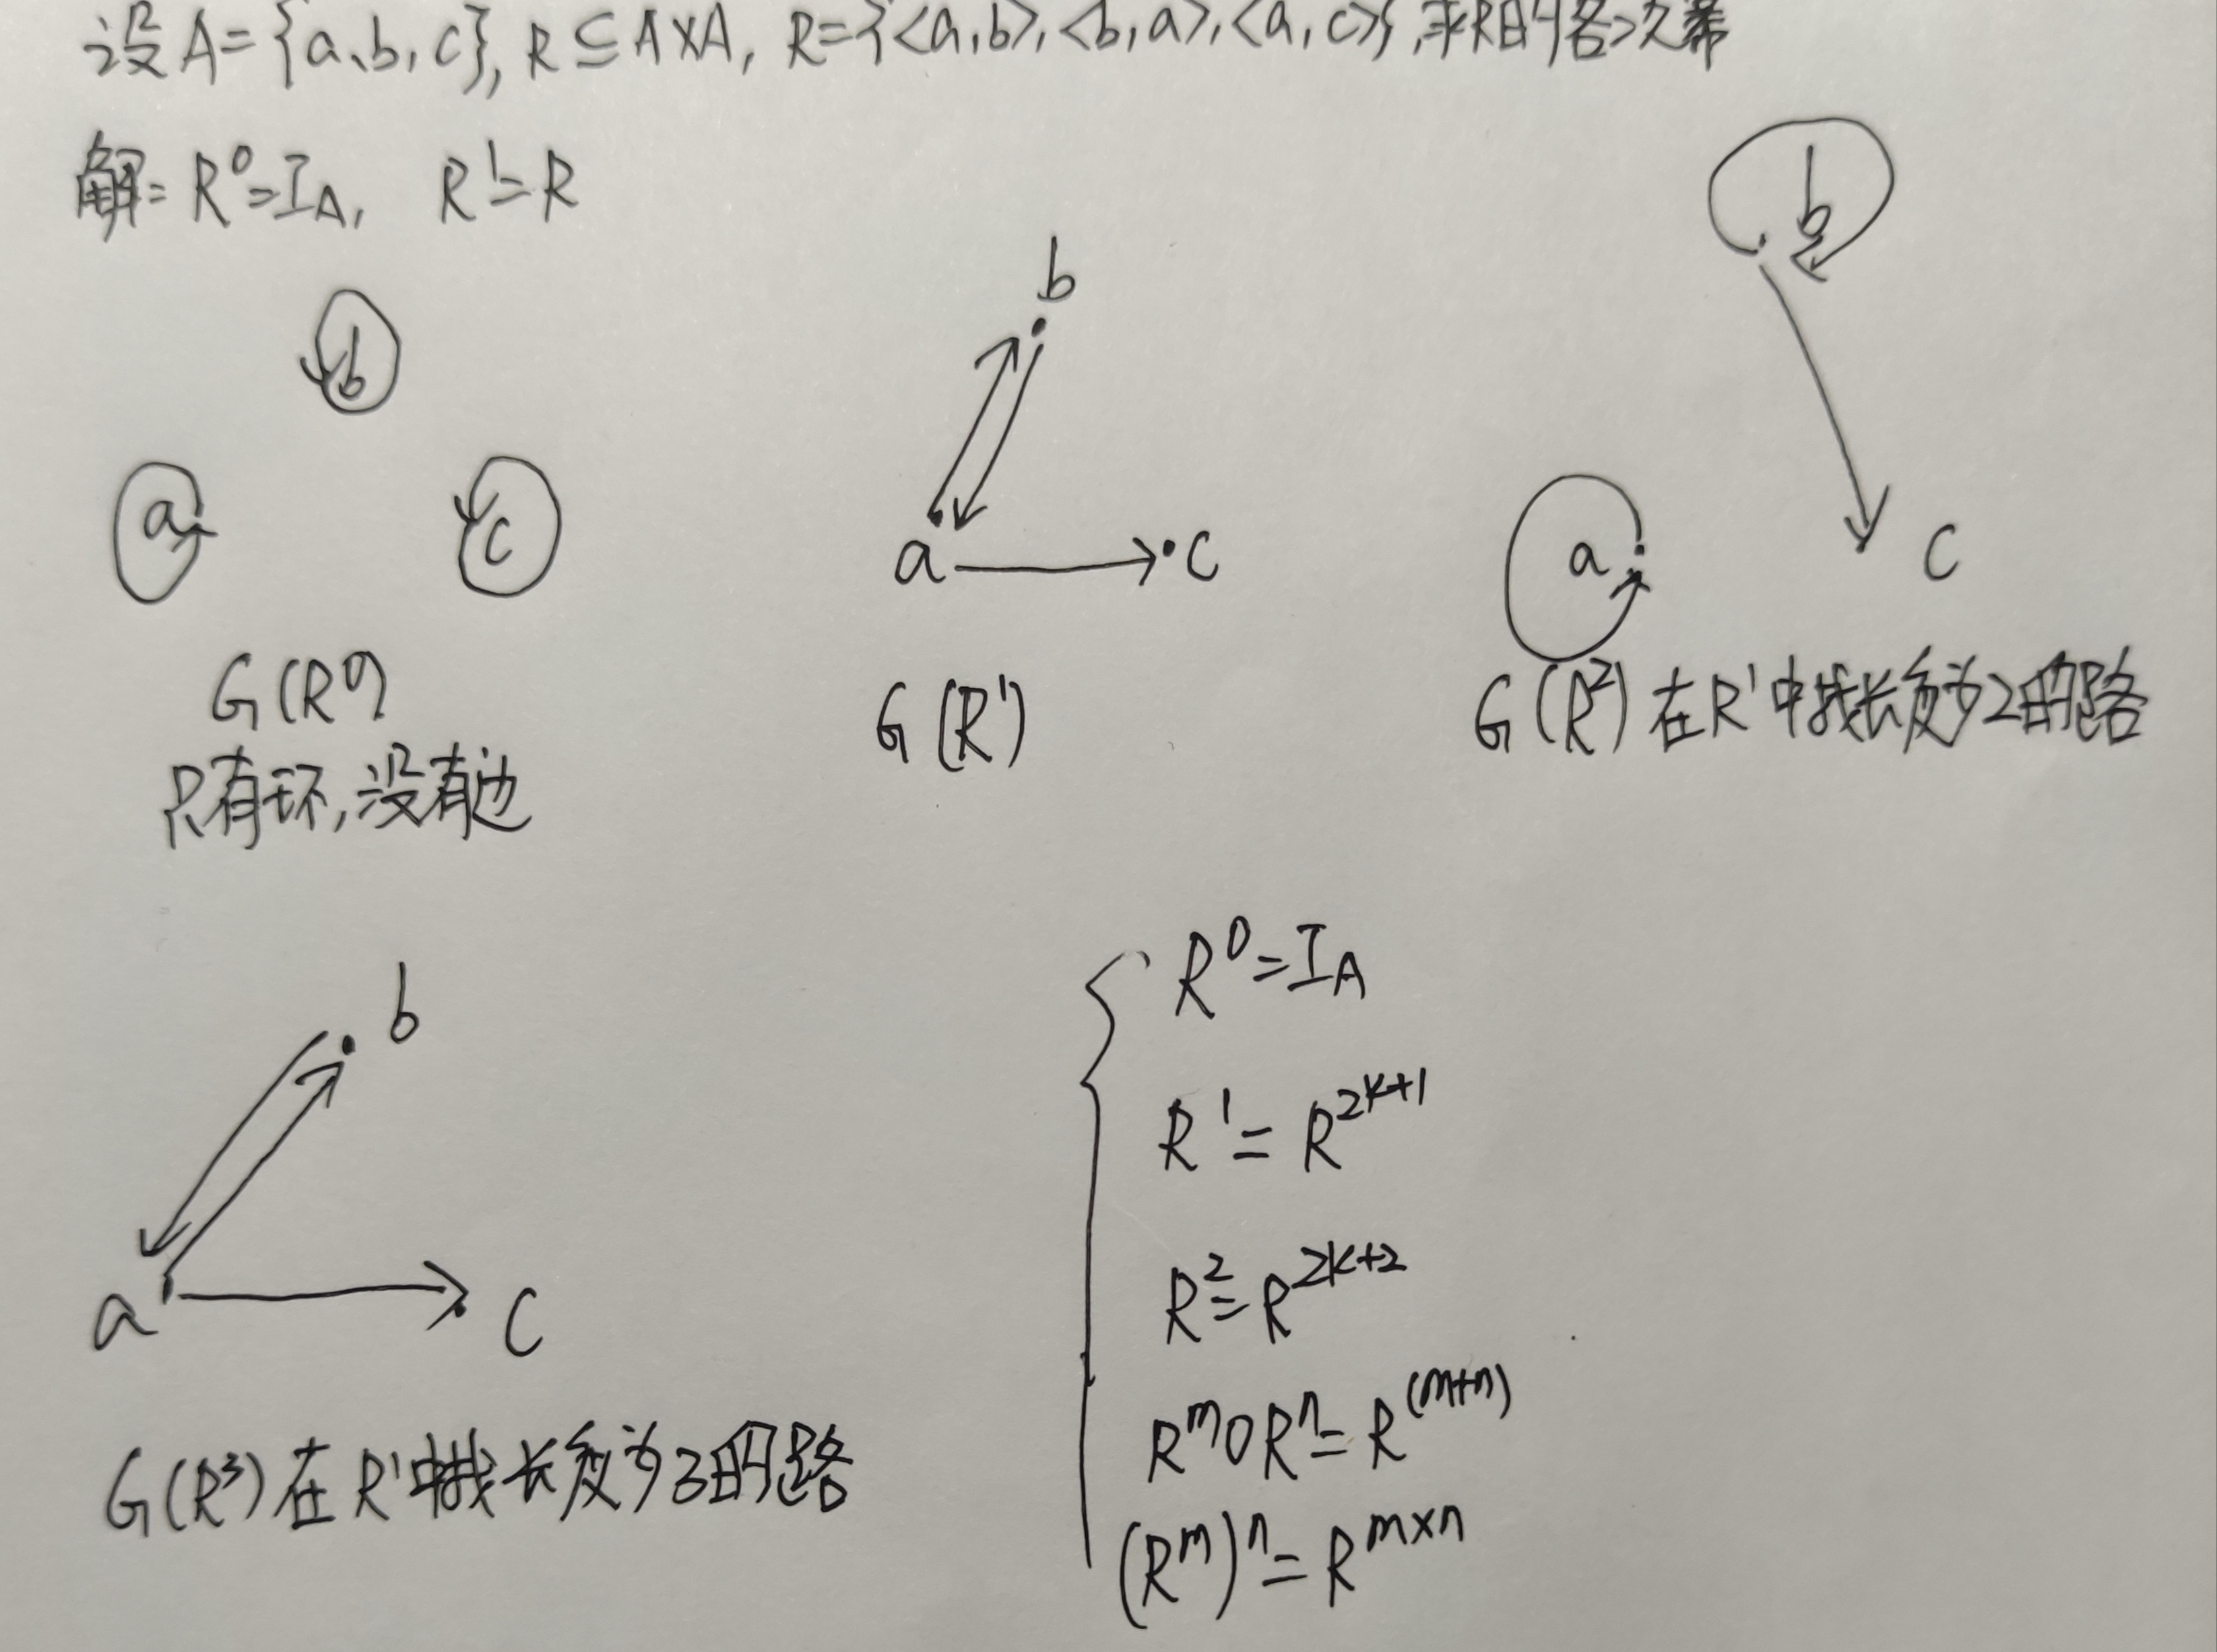 设A={a、b,c},R⊆A×A,R={<a,b>,<b,a>,<a,c>},求R的各次幂
解: R⁰=I_A, R¹=R
b
a
c
G(R⁰)
只有环,没有边
b
a
c
G(R¹)
b
a
c
G(R²)在R¹中找长度为2的路
b
a
c
G(R³)在R¹中找长度为3的路
R⁰=I_A
R¹=R^{2k+1}
R²=R^{2k+2}
R^m∘R^n=R^{(m+n)}
(R^m)^n=R^{m×n}